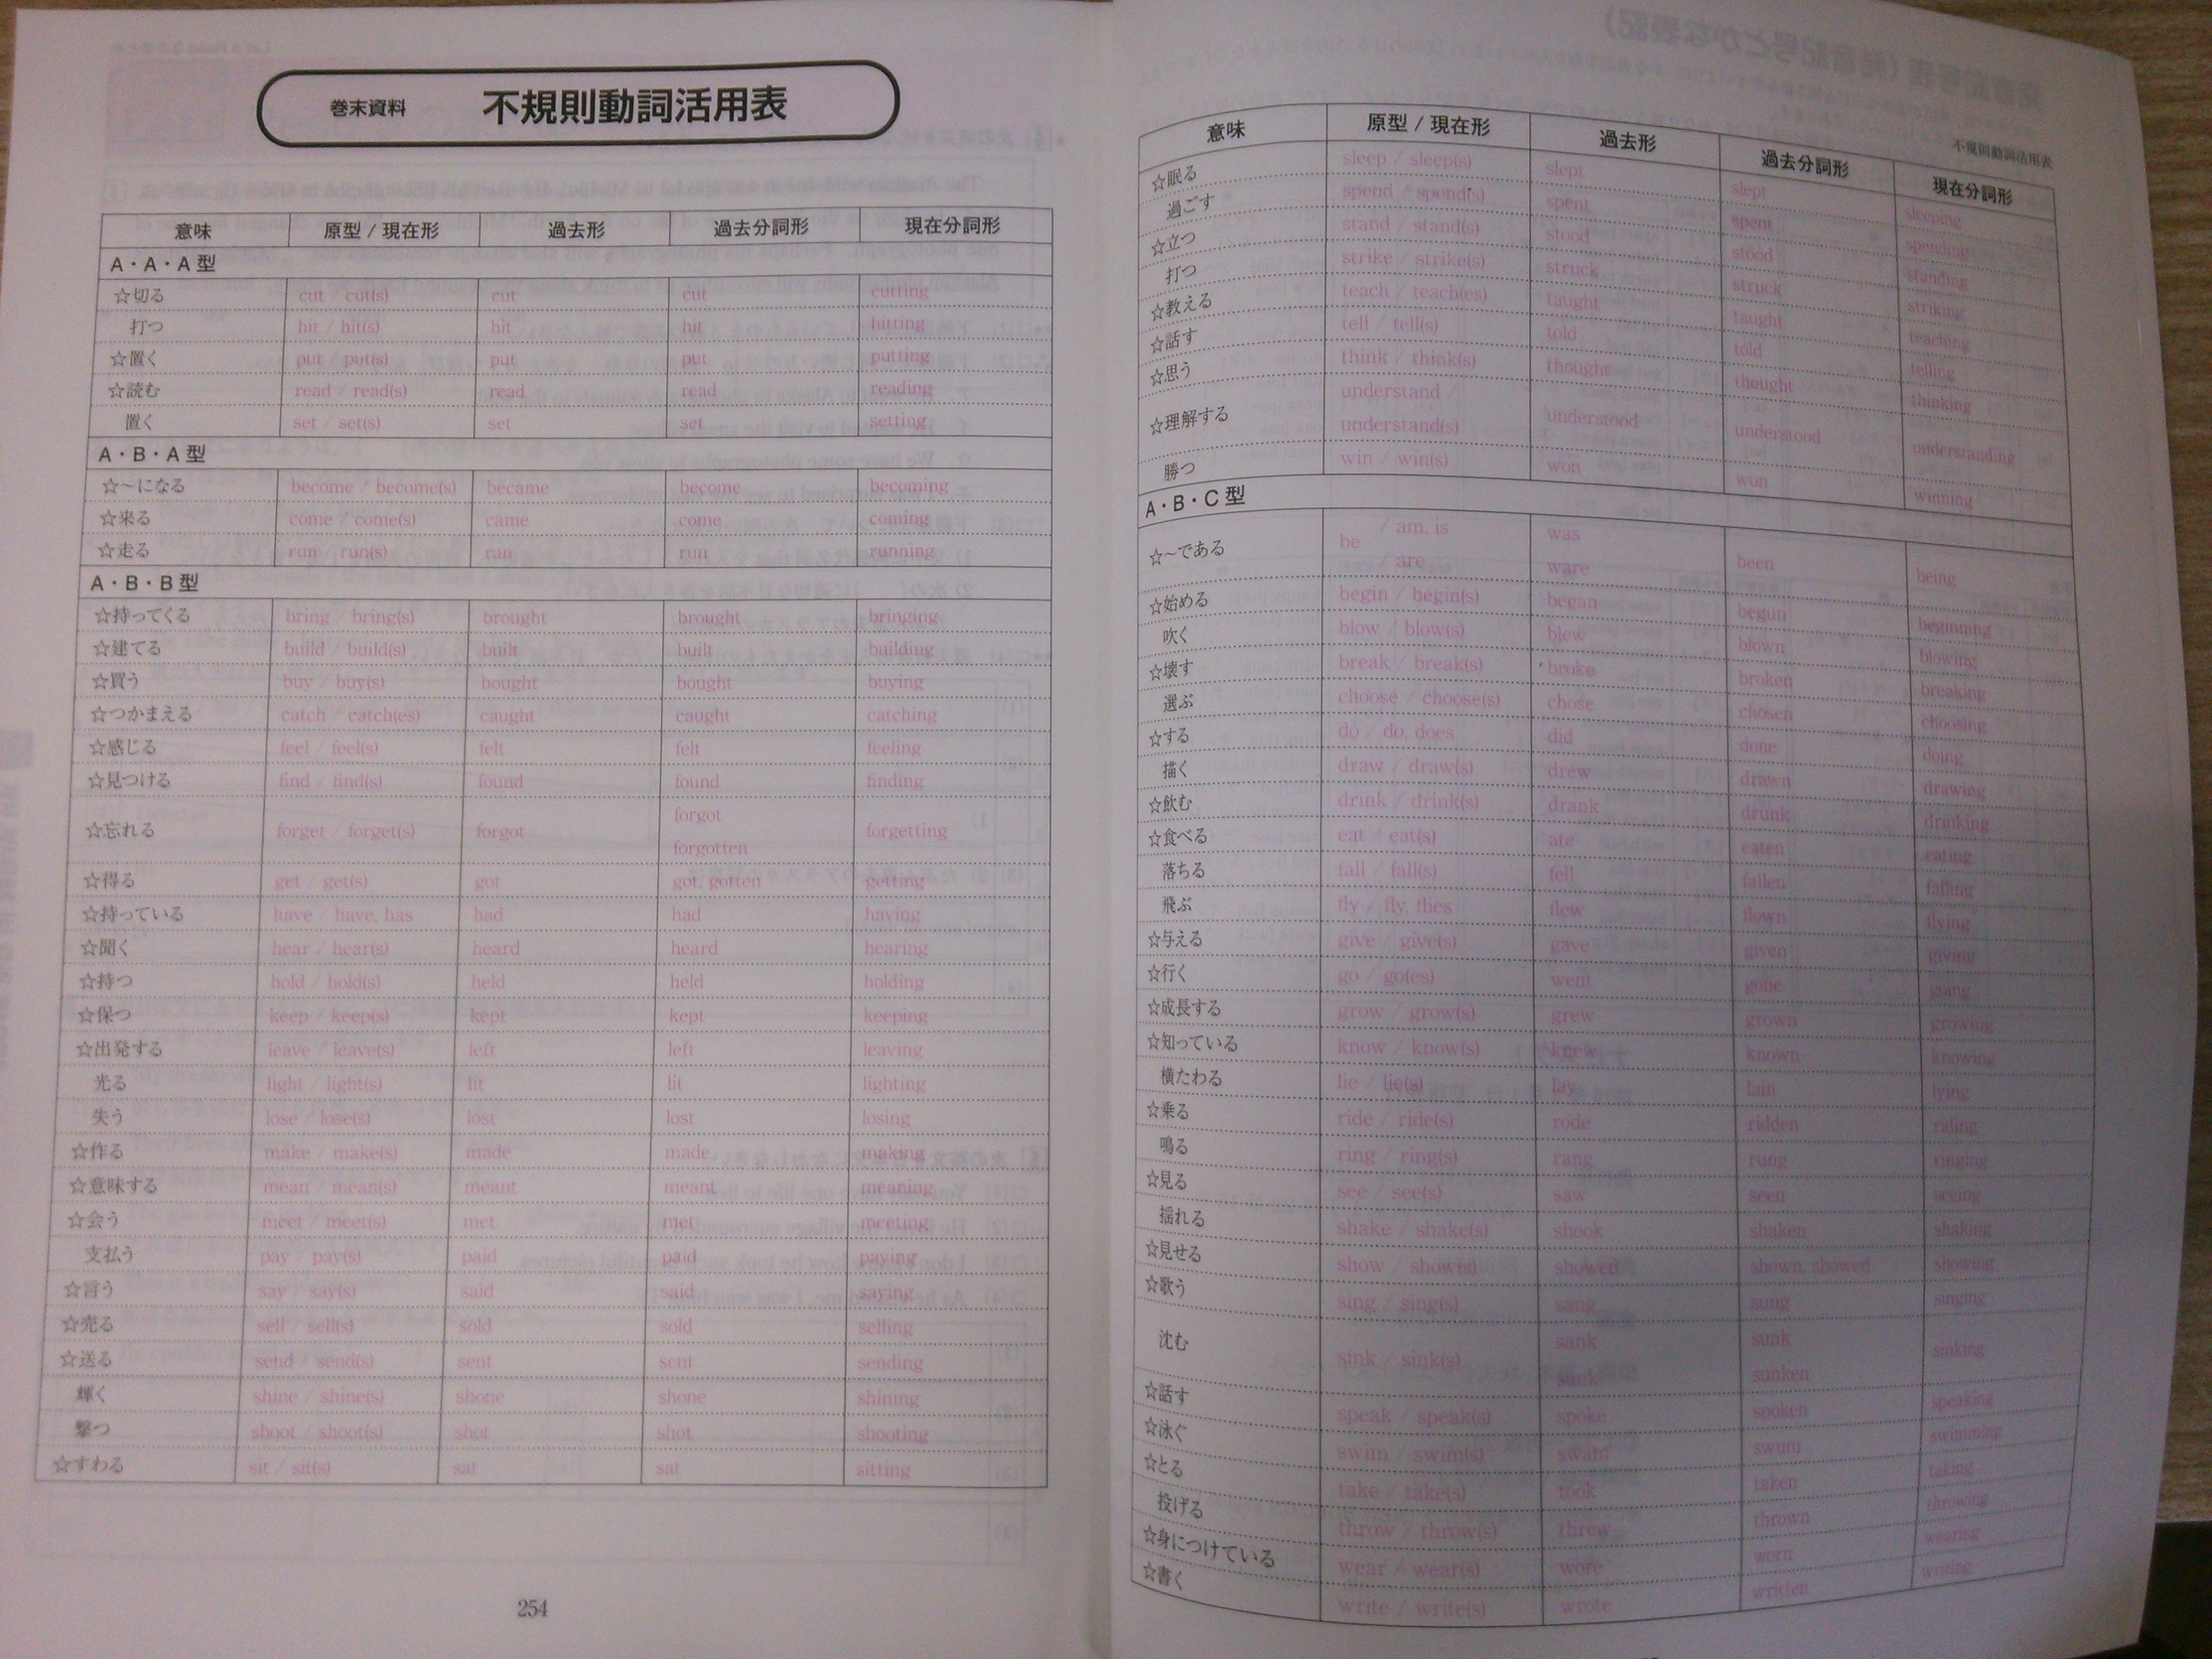 巻末資料 不規則動詞活用表
意味 原型 / 現在形 過去形 過去分詞形 現在分詞形
A・A・A 型
☆切る cut / cut(s) cut cut cutting
打つ hit / hit(s) hit hit hitting
☆置く put / put(s) put put putting
☆読む read / read(s) read read reading
置く set / set(s) set set setting
A・B・A 型
☆～になる become / become(s) became become becoming
☆来る come / come(s) came come coming
☆走る run / run(s) ran run running
A・B・B 型
☆持ってくる bring / bring(s) brought brought bringing
☆建てる build / build(s) built built building
☆買う buy / buy(s) bought bought buying
☆つかまえる catch / catch(es) caught caught catching
☆感じる feel / feel(s) felt felt feeling
☆見つける find / find(s) found found finding
☆忘れる forget / forget(s) forgot forgot forgotten forgetting
☆得る get / get(s) got got, gotten getting
☆持っている have / have, has had had having
☆聞く hear / hear(s) heard heard hearing
☆持つ hold / hold(s) held held holding
☆保つ keep / keep(s) kept kept keeping
☆出発する leave / leave(s) left left leaving
光る light / light(s) lit lit lighting
失う lose / lose(s) lost lost losing
☆作る make / make(s) made made making
☆意味する mean / mean(s) meant meant meaning
☆会う meet / meet(s) met met meeting
支払う pay / pay(s) paid paid paying
☆言う say / say(s) said said saying
☆売る sell / sell(s) sold sold selling
☆送る send / send(s) sent sent sending
輝く shine / shine(s) shone shone shining
撃つ shoot / shoot(s) shot shot shooting
☆すわる sit / sit(s) sat sat sitting
254
不規則動詞活用表
意味 原型 / 現在形 過去形 過去分詞形 現在分詞形
☆眠る sleep / sleep(s) slept slept sleeping
過ごす spend / spend(s) spent spent spending
☆立つ stand / stand(s) stood stood standing
打つ strike / strike(s) struck struck striking
☆教える teach / teach(es) taught taught teaching
☆話す tell / tell(s) told told telling
☆思う think / think(s) thought thought thinking
☆理解する understand / understand(s) understood understood understanding
勝つ win / win(s) won won winning
A・B・C 型
☆～である be / am, is / are was ware been being
☆始める begin / begin(s) began begun beginning
吹く blow / blow(s) blew blown blowing
☆壊す break / break(s) broke broken breaking
選ぶ choose / choose(s) chose chosen choosing
☆する do / do, does did done doing
描く draw / draw(s) drew drawn drawing
☆飲む drink / drink(s) drank drunk drinking
☆食べる eat / eat(s) ate eaten eating
落ちる fall / fall(s) fell fallen falling
飛ぶ fly / fly, flies flew flown flying
☆与える give / give(s) gave given giving
☆行く go / go(es) went gone going
☆成長する grow / grow(s) grew grown growing
☆知っている know / know(s) knew known knowing
横たわる lie / lie(s) lay lain lying
☆乗る ride / ride(s) rode ridden riding
鳴る ring / ring(s) rang rung ringing
☆見る see / see(s) saw seen seeing
揺れる shake / shake(s) shook shaken shaking
☆見せる show / show(s) showed shown, showed showing
☆歌う sing / sing(s) sang sung singing
沈む sink / sink(s) sank sunk sunk sunken sinking
☆話す speak / speak(s) spoke spoken speaking
☆泳ぐ swim / swim(s) swam swum swimming
☆とる take / take(s) took taken taking
投げる throw / throw(s) threw thrown throwing
☆身につけている wear / wear(s) wore worn wearing
☆書く write / write(s) wrote written writing